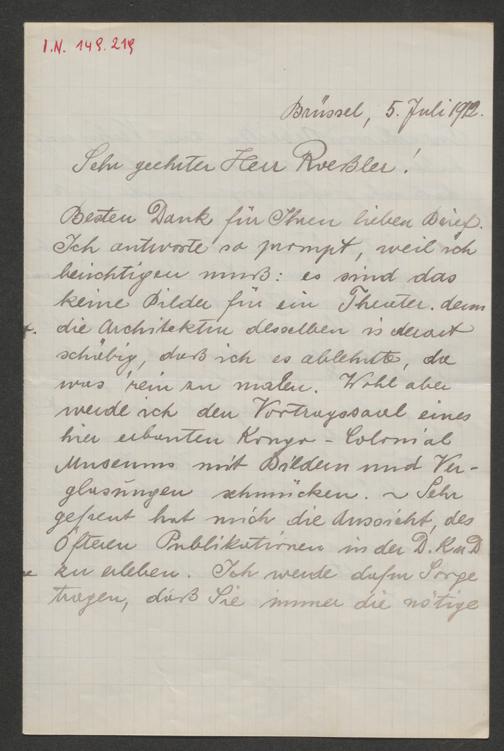 I.N. 149.219
Brüssel, 5. Juli 1912.
Sehr geehrter Herr Roeßler!
Besten Dank für Ihren lieben Brief.
Ich antworte so prompt, weil ich
berichtigen muß: es sind das
keine Bilder für ein Theater. denn
die Architektur desselben is derart
schäbig, daß ich es ablehnte, da
was 'rein zu malen. Wohl aber
werde ich den Vortragssaal eines
hier erbauten Kongo-Colonial
Museums mit Bildern und Ver-
glasungen schmücken. ~ Sehr
gefreut hat mich die Aussicht, des
Öfteren Publikationen in der D. K u D
zu erleben. Ich werde dafür Sorge
tragen, daß Sie immer die nötige